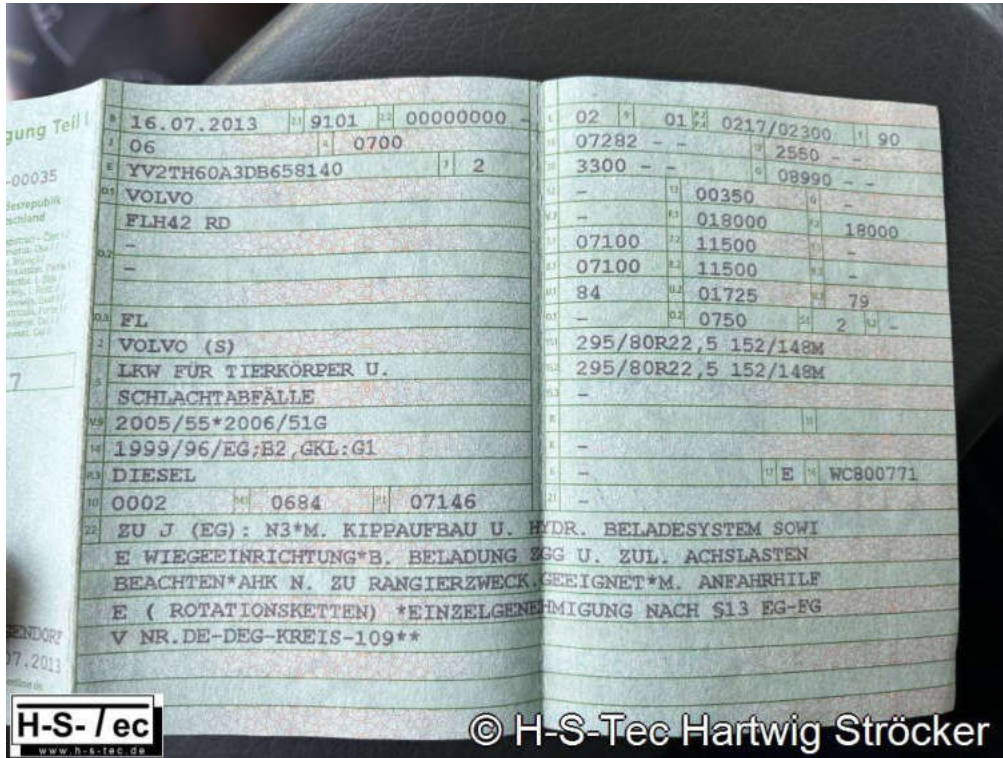 gung Teil I
-00035
7
GENDORF
07.2013
B 16.07.2013 2.1 9101 2.2 00000000 -
J 06 4 0700
E YV2TH60A3DB658140 3 2
D.1 VOLVO
FLH42 RD
D.2 -
-
D.3 FL
2 VOLVO (S)
5 LKW FÜR TIERKÖRPER U.
SCHLACHTABFÄLLE
V.9 2005/55*2006/51G
14 1999/96/EG;B2,GKL:G1
P.3 DIESEL
10 0002 14.1 0684 P.1 07146
L 02 9 01 P.2 P.4 0217/02300 T 90
18 07282 - - 19 2550 - -
20 3300 - - G 08990 - -
12 - 13 00350 Q -
V.7 - F.1 018000 F.2 18000
7.1 07100 7.2 11500 7.3 -
8.1 07100 8.2 11500 8.3 -
U.1 84 U.2 01725 U.3 79
O.1 - O.2 0750 S.1 2 S.2 -
15.1 295/80R22,5 152/148M
15.2 295/80R22,5 152/148M
15.3 -
R 11
K -
6 - 17 E 16 WC800771
21 -
22 ZU J (EG): N3*M. KIPPAUFBAU U. HYDR. BELADESYSTEM SOWI
E WIEGEEINRICHTUNG*B. BELADUNG ZGG U. ZUL. ACHSLASTEN
BEACHTEN*AHK N. ZU RANGIERZWECK.GEEIGNET*M. ANFAHRHILF
E ( ROTATIONSKETTEN) *EINZELGENEHMIGUNG NACH §13 EG-FG
V NR.DE-DEG-KREIS-109**
H-S-Tec
www.h-s-tec.de
© H-S-Tec Hartwig Ströcker